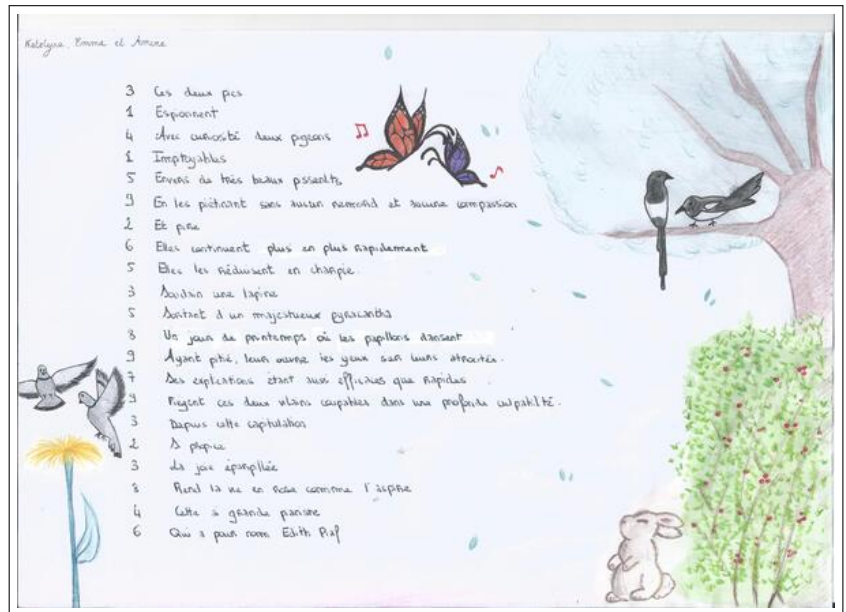 Katelyne, Emma et Amine
3 Ces deux pies
1 Espionnent
4 Avec curiosité deux pigeons
1 Impitoyables
5 Envers de très beaux pissenlits
9 En les piétinant sans aucun remord et aucune compassion
2 Et pire
6 Elles continuent plus en plus rapidement
5 Elles les réduisent en charpie.
3 Soudain une lapine
5 Sortant d'un majestueux pyracantha
8 Un jour de printemps où les papillons dansent
9 Ayant pitié, leur ouvre les yeux sur leurs atrocités.
7 Ses explications étant aussi efficaces que rapides
9 Piègent ces deux vilains coupables dans une profonde culpabilité.
3 Depuis cette capitulation
2 
3 La joie éparpillée
8 Rend la vie en rose comme l'aspire
4 Cette si grande
6 Qui a pour nom Edith Piaf